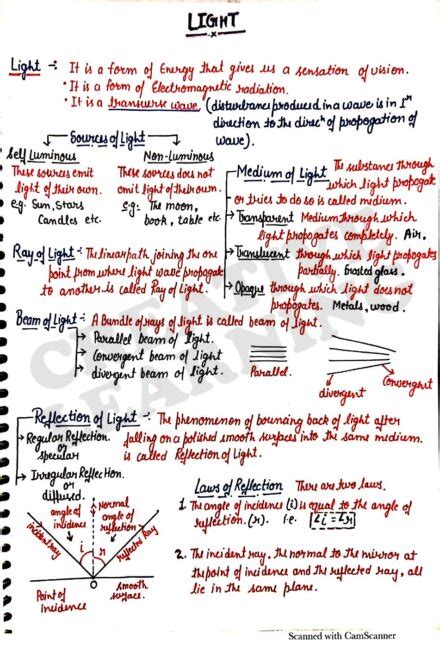 LIGHT
Light -: It is a form of Energy that gives us a sensation of vision.
• It is a form of Electromagnetic radiation.
• It is a transverse wave (disturbance produced in a wave is in Ir
direction to the direcn of propagation of
wave).
Sources of Light
Self Luminous
These sources emit
light of their own.
e.g: Sun, Stars
Candles etc.
Non-Luminous
These sources does not
emit light of their own.
E.g:- The moon,
book, table etc.
Medium of Light The substance through
which light propagat
or tries to do so is called midium.
Transparent Medium through which
light propagates completely. Air.
Translucent through which light propagates
partially. frosted glass.
Opaque through which light does not
propagates. Metals, wood.
Ray of Light -: The linear path joining the one
point from where light wave propagate
to another is called Ray of Light.
Beam of Light -: A Bundle of rays of light is called beam of light.
Parallel beam of light.
Convergent beam of light
divergent beam of light.
Parallel.
divergent
Convergent
CREATIVE
LEARNING
Reflection of Light -: The phenomenon of bouncing back of light after
falling on a polished smooth surfaces into the same medium.
is called Reflection of Light.
Regular Reflection
or
specular
Irregular Reflection.
or
diffused.
angle of
incidence
Normal
angle of
reflection
incident ray
i
r
Reflected Ray
Point of
Incidence
O
Smooth
surface.
Laws of Reflection There are two laws.
1. The angle of incidence (i) is equal to the angle of
reflection. (r). i.e ∠i = ∠r
2. The incident ray, the normal to the mirror at
the point of incidence and the reflected ray, all
lie in the same plane.
Scanned with CamScanner